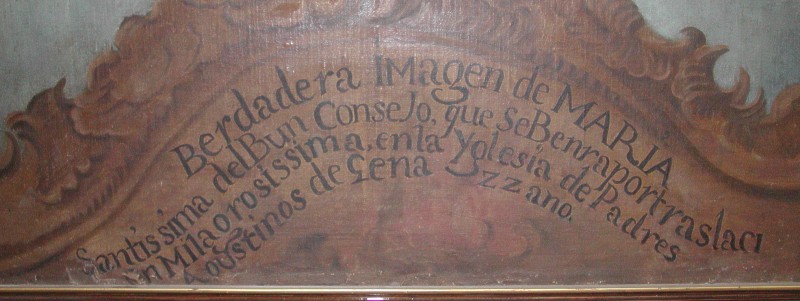 Berdadera IMagen de MARIA
Santissima delBun ConseJo, que SeBenraportraslaci
on Milagrosissima, en la Yglesia de Padres
Agustinos de Gena zzano.